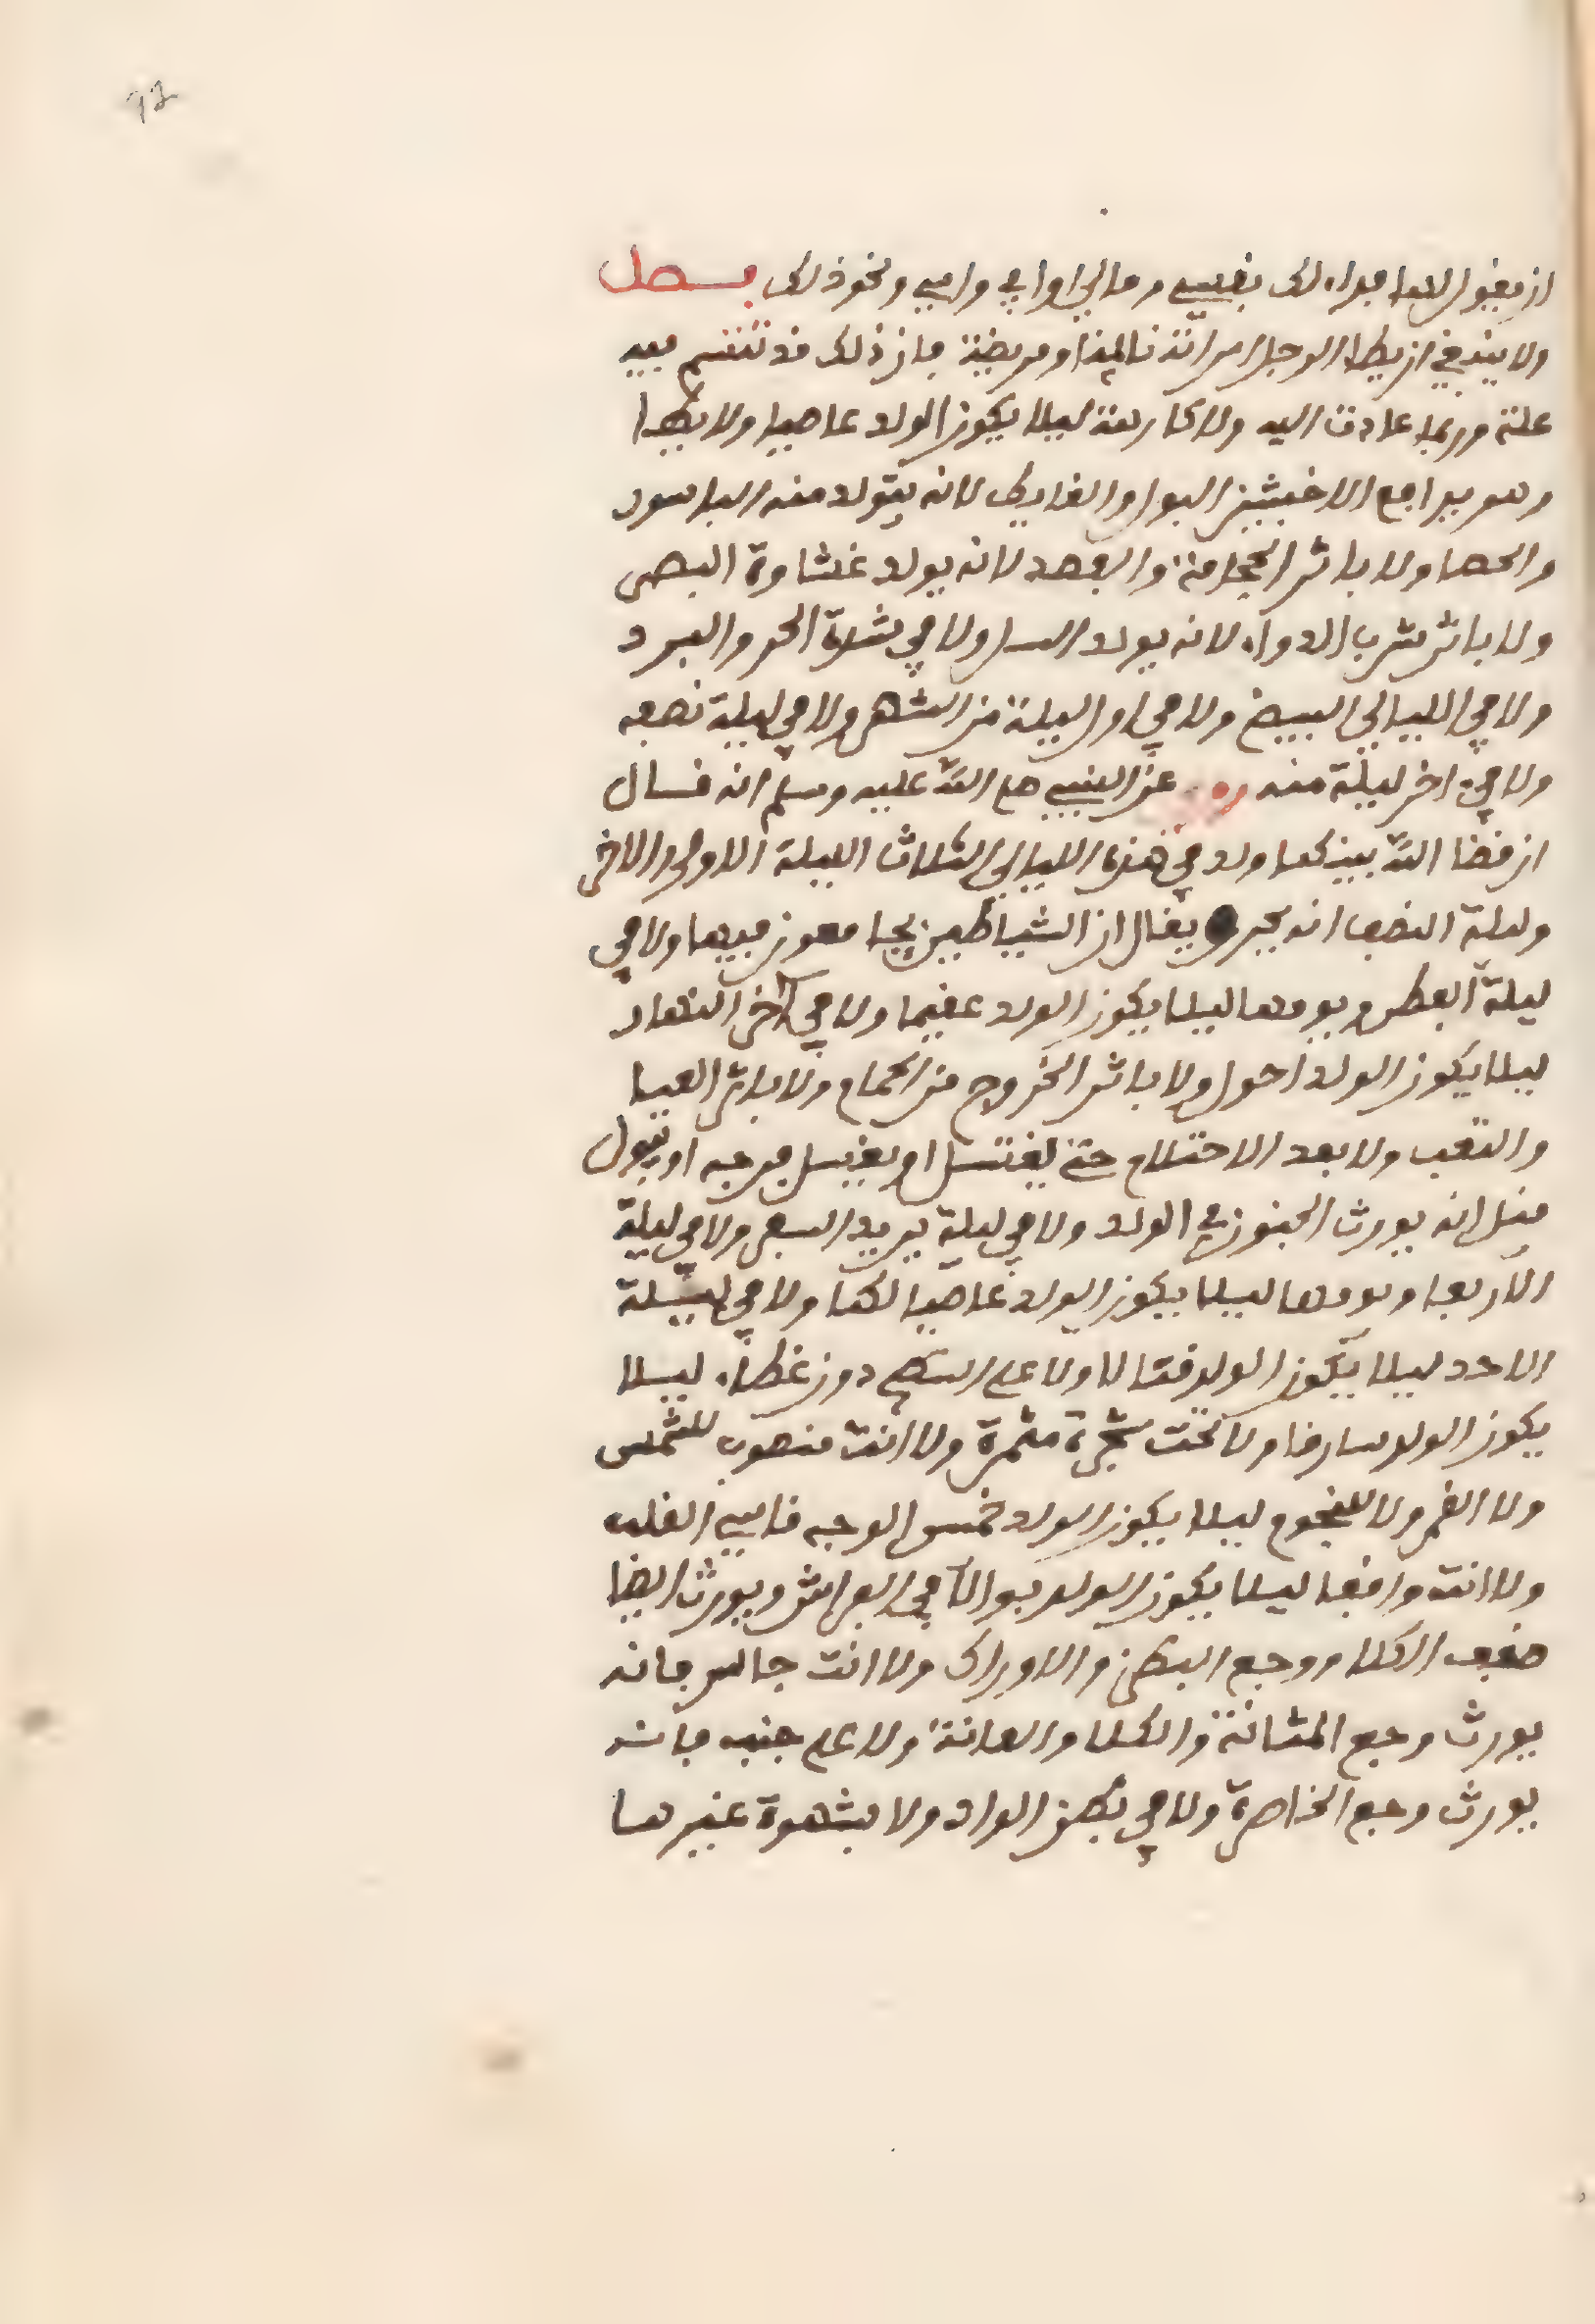 ان يقول لها فداك نفسي ومالي او ابي وامي ونحو ذلك فصل
ولا ينبغي ان يطا الرجل امراته نايمة او مريضة فان ذلك قد تنتسم فيه
علة وربما عادت اليه ولا كارهة ليلا يكون الولد عاصيا ولا يطا
وهو يدافع الاخبثين البول والغايط لانه يتولد منه الباسور
والحصا ولا باثر الحجامة والفصد لانه يولد غشاوة البصر
ولا باثر شرب الدواء لانه يولد السل ولا في شدة الحر والبرد
ولا في الليالي البيض ولا في اول ليلة من الشهر ولا في ليلة نصفه
ولا في اخر ليلة منه عن النبي صلى الله عليه وسلم انه قال
ان قضا الله بينكما ولد في هذه الليالي الثلاث الليلة الاولى والاخرى
وليلة النصف انه يقال ان الشياطين يجامعون فيها ولا في
ليلة الفطر ويومها ليلا يكون الولد عقيما ولا في اخر النهار
ليلا يكون الولد احول ولا باثر الخروج من الحمام ولا باثر العيا
والتعب ولا بعد الاحتلام حتى يغتسل او يغسل فرجه او يبول
قيل انه يورث الجنون في الولد ولا في ليلة يريد السفر ولا في ليلة
الاربعا ويومها ليلا يكون الولد عاصيا لهما ولا في ليلة
الاحد ليلا يكون الولد قتالا ولا على السطح دون غطاء ليلا
يكون الولد سارقا ولا تحت شجرة مثمرة ولا انت منصوب للشمس
ولا القمر ولا للنجوم ليلا يكون الولد الوجه قاسي القلب
ولا انت واقفا ليلا يكون الولد بوالا في الفراش ويورث ايضا
ضعف الكلا ووجع البطن والاوراك ولا انت جالس فانه
يورث وجع المثانة والكلا والعانة ولا على جنب فانه
يورث وجع الخاصرة ولا في بطن الواد ولا بشهوة غيرها